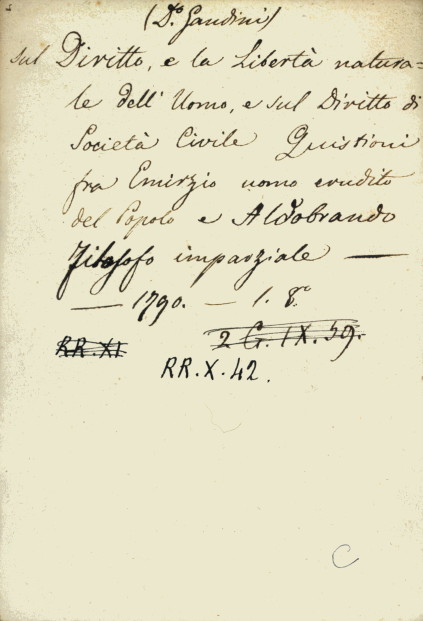 (D.º Gandini)
sul Diritto, e la Libertà natura=
le dell' Uomo, e sul Diritto di
Società Civile Quistioni
fra Emirzio uomo erudito
del Popolo e Aldobrando
Filosofo imparziale —
— 1790. — 1. 8.º
RR.XI 2 G. IX. 59.
RR.X.42.
C